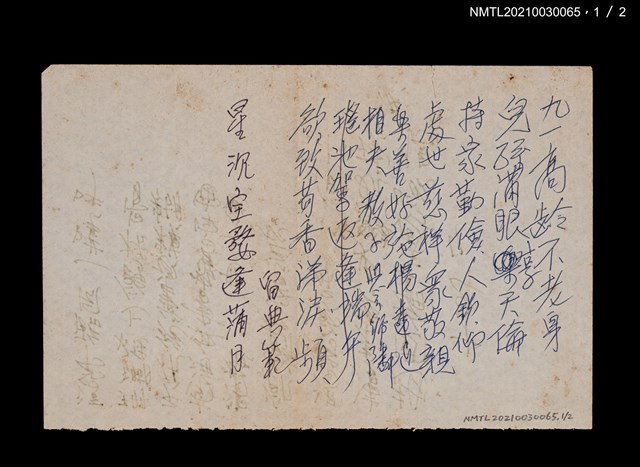 NMTL20210030065，1 / 2
九一高齡不老身
兒孫滿眼享天倫
持家勤儉人欽仰
處世慈祥眾敬親
樂善好施揚遠近
相夫教子
瑤池駕返逢端午
欲致苛香涕淚頻
留典範
星沉宝婺逢蒲月
NMTL20210030065,1/2